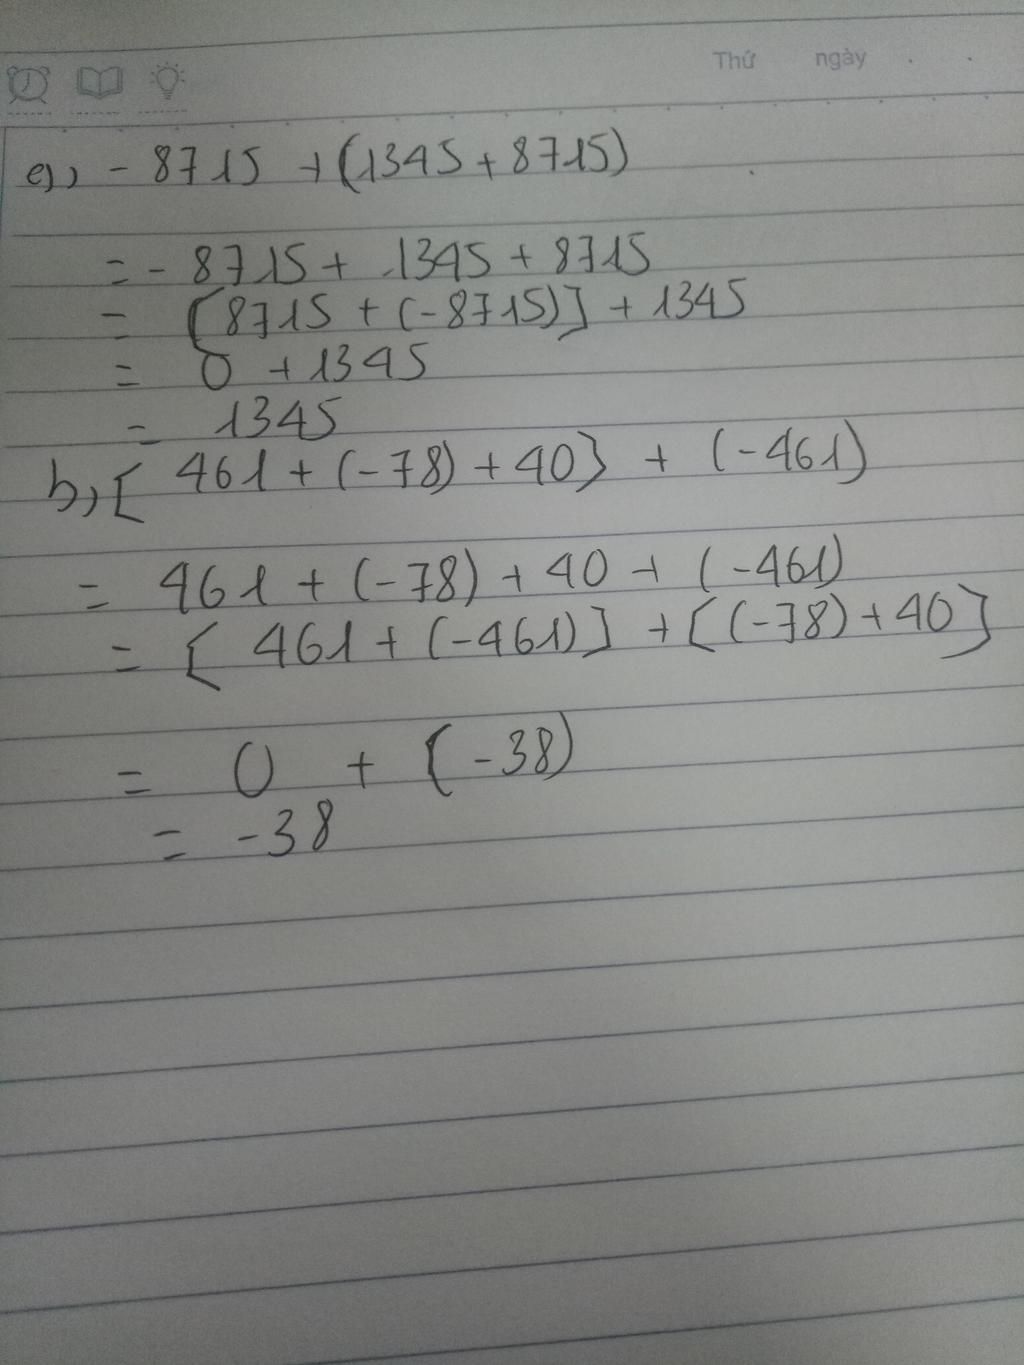 Thứ ngày . .
a), - 8715 + (1345 + 8715)
= - 8715 + 1345 + 8715
= [8715 + (-8715)] + 1345
= 0 + 1345
= 1345
b, [ 461 + (-78) + 40] + (-461)
= 461 + (-78) + 40 + (-461)
= [ 461 + (-461)] + [(-78) + 40]
= 0 + (-38)
= -38